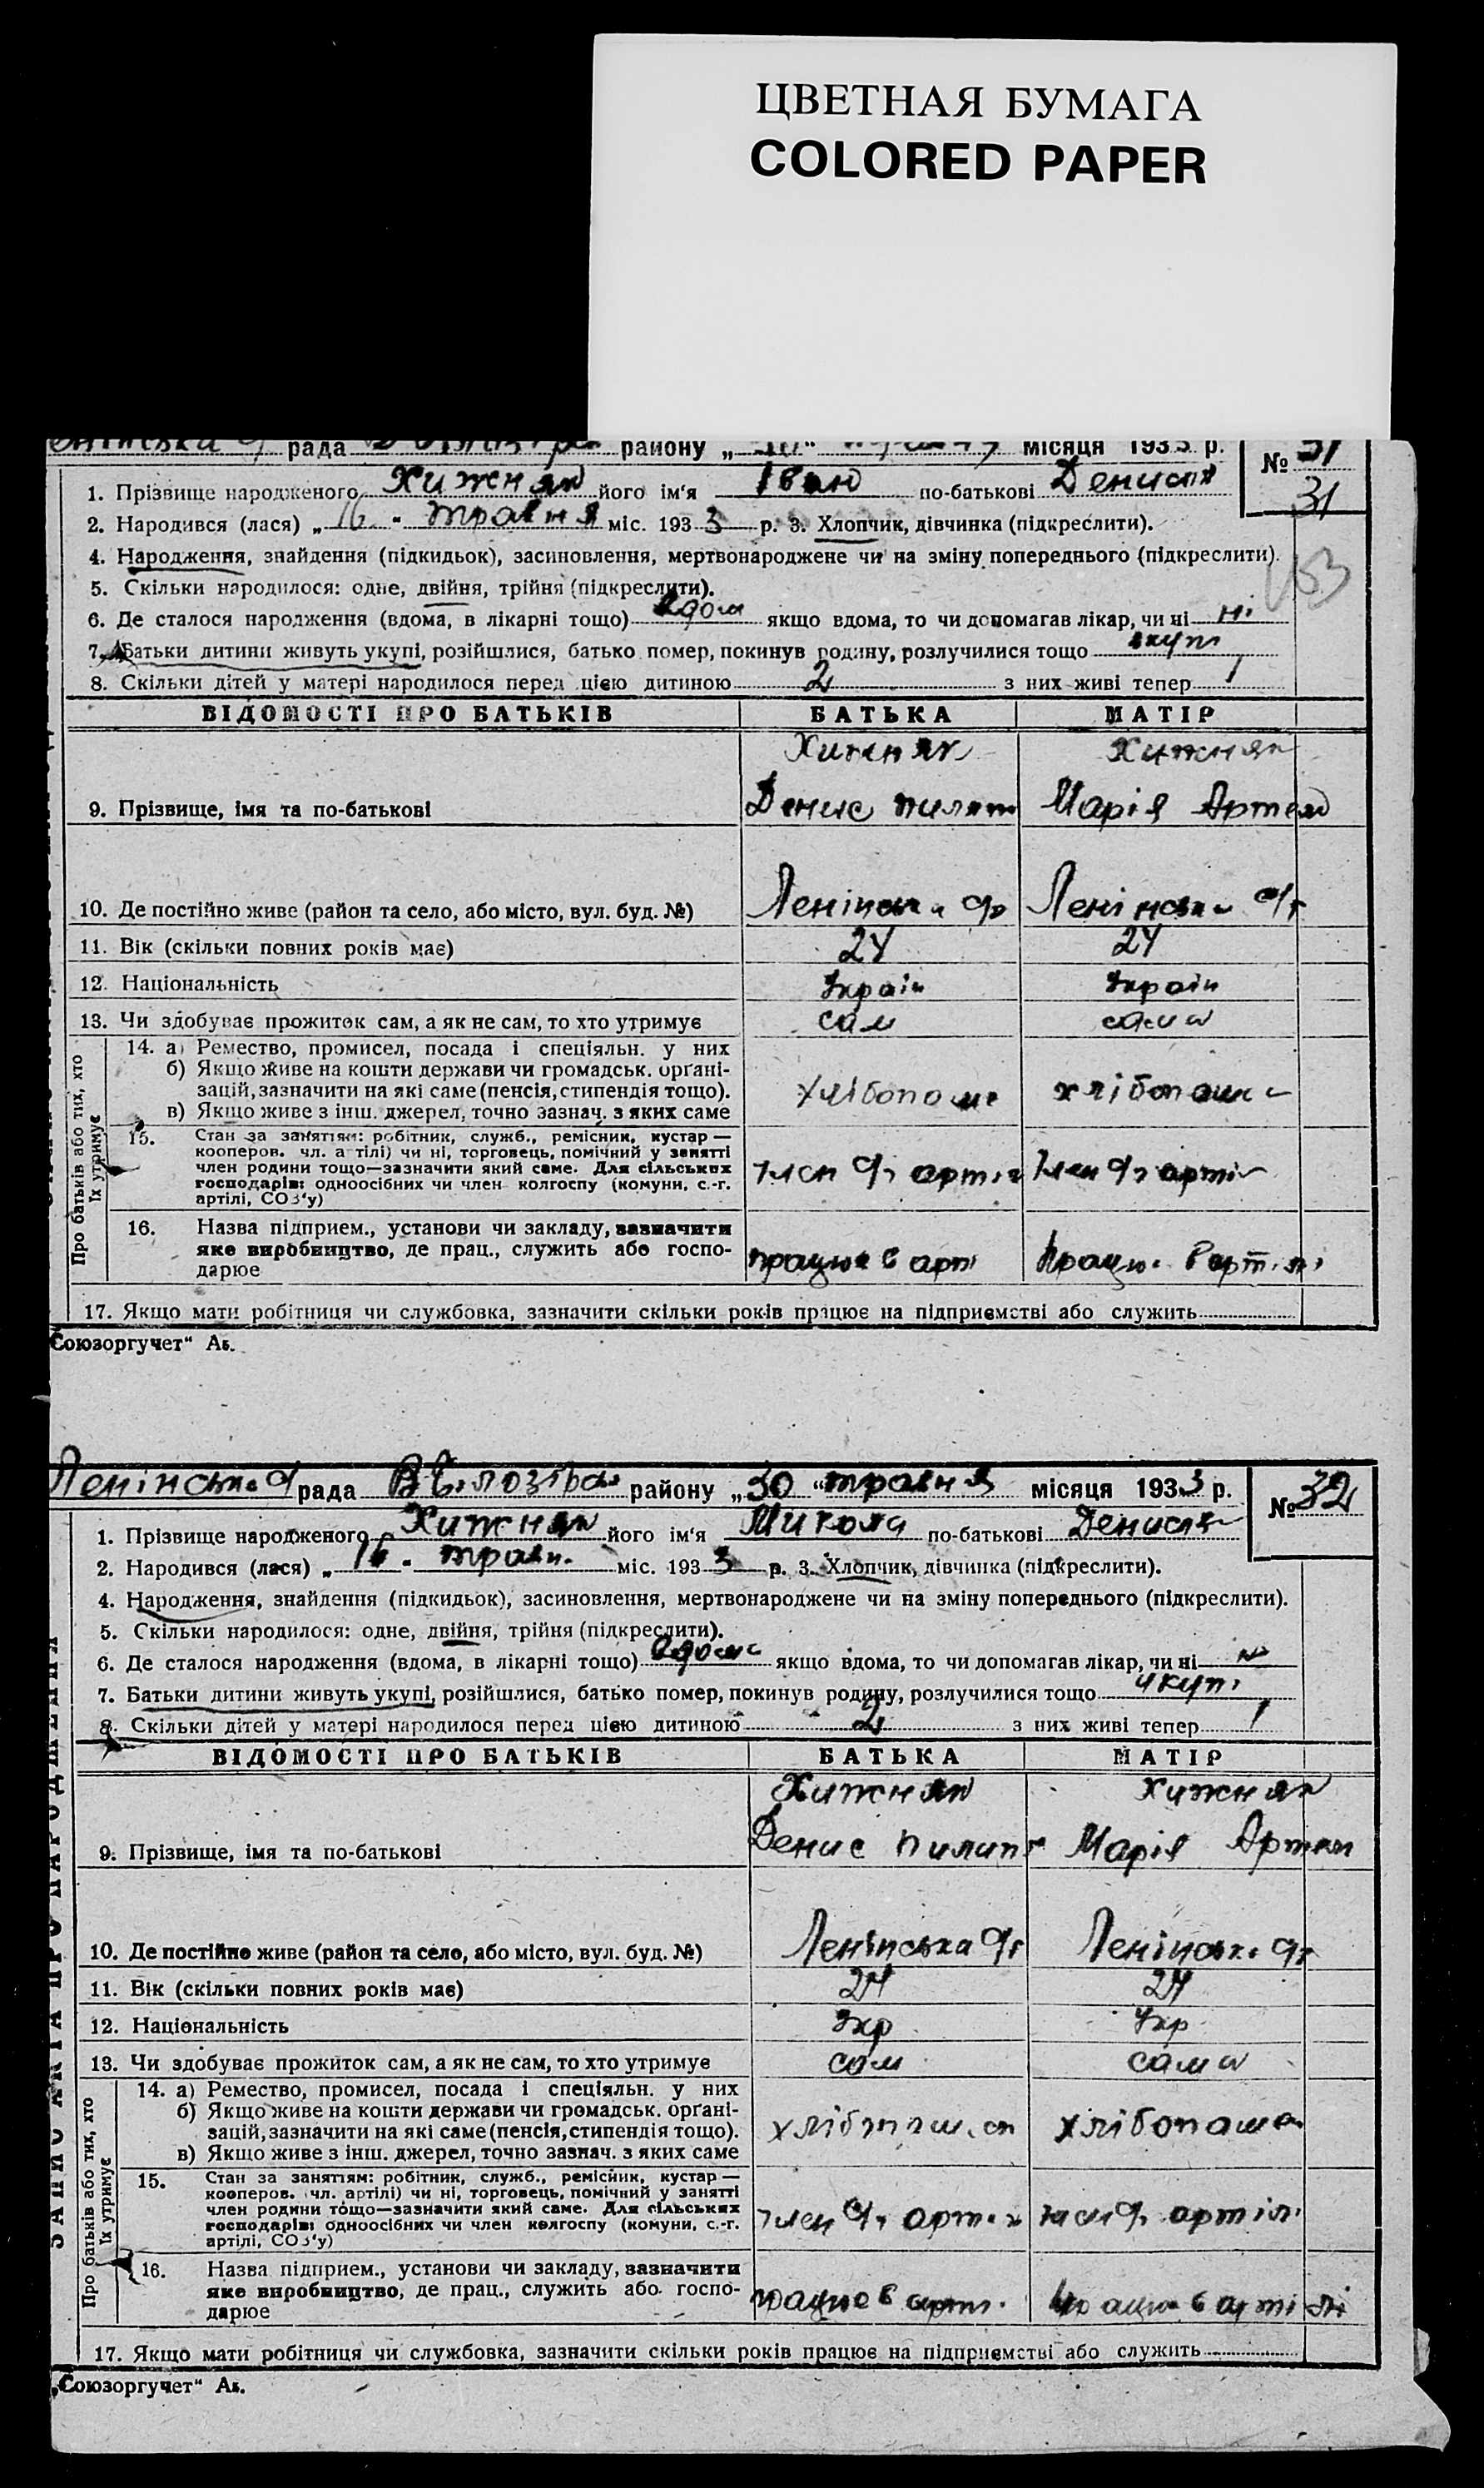 ЦВЕТНАЯ БУМАГА
COLORED PAPER
рада району „30“ травня місяця 1933 р. № 31
31
1. Прізвище народженого Хижняк його ім'я Іван по-батькові Денисов
2. Народився (лася) „16“ травня міс. 1933 р. 3. Хлопчик, дівчинка (підкреслити).
4. Народження, знайдення (підкидьок), засиновлення, мертвонароджене чи на зміну попереднього (підкреслити).
153
5. Скільки народилося: одне, двійня, трійня (підкреслити).
6. Де сталося народження (вдома, в лікарні тощо) вдома якщо вдома, то чи допомагав лікар, чи ні ні
7. Батьки дитини живуть укупі, розійшлися, батько помер, покинув родину, розлучилися тощо вкупі
8. Скільки дітей у матері народилося перед цією дитиною 2 з них живі тепер 1
ВІДОМОСТІ ПРО БАТЬКІВ БАТЬКА МАТІР
Хижняк Хижняк
9. Прізвище, імя та по-батькові Денис Пилип Марія Артем
10. Де постійно живе (район та село, або місто, вул. буд. №) Ленінська Ленінська
11. Вік (скільки повних років має) 24 24
12. Національність Україн Україн
13. Чи здобуває прожиток сам, а як не сам, то хто утримує сам сама
Про батьків або тих, хто їх утримує
14. а) Ремество, промисел, посада і спеціяльн. у них
б) Якщо живе на кошти держави чи громадськ. орґані-
зацій, зазначити на які саме (пенсія, стипендія тощо). хлібопаше хлібопаш
в) Якщо живе з інш. джерел, точно зазнач. з яких саме
15. Стан за заняттям: робітник, служб., ремісник, кустар —
кооперов. чл. артілі) чи ні, торговець, помічний у занятті
член родини тощо—зазначити який саме. Для сільських член арт член арті
господарів: одноосібних чи член колгоспу (комуни, с.-г.
артілі, СОЗ'у)
16. Назва підприєм., установи чи закладу, зазначити
яке виробництво, де прац., служить або госпо- працює в арт працює в артілі
дарює
17. Якщо мати робітниця чи службовка, зазначити скільки років працює на підприємстві або служить
Союзоргучет“ Аг.
Ленінська рада району „30“ травня місяця 1933 р. № 32
1. Прізвище народженого Хижняк його ім'я Микола по-батькові Денисов
2. Народився (лася) „16“ травн. міс. 1933 р. 3. Хлопчик, дівчинка (підкреслити).
4. Народження, знайдення (підкидьок), засиновлення, мертвонароджене чи на зміну попереднього (підкреслити).
5. Скільки народилося: одне, двійня, трійня (підкреслити).
6. Де сталося народження (вдома, в лікарні тощо) вдома якщо вдома, то чи допомагав лікар, чи ні ні
7. Батьки дитини живуть укупі, розійшлися, батько помер, покинув родину, розлучилися тощо укупі
8. Скільки дітей у матері народилося перед цією дитиною 2 з них живі тепер 1
ВІДОМОСТІ ПРО БАТЬКІВ БАТЬКА МАТІР
Хижняк Хижняк
9. Прізвище, імя та по-батькові Денис Пилип Марія Артем
10. Де постійно живе (район та село, або місто, вул. буд. №) Ленінська Ленінська
11. Вік (скільки повних років має) 24 24
12. Національність Укр Укр
13. Чи здобуває прожиток сам, а як не сам, то хто утримує сам сама
ЗАПИС АКТА ПРО НАРОДЖЕННЯ
Про батьків або тих, хто їх утримує
14. а) Ремество, промисел, посада і спеціяльн. у них
б) Якщо живе на кошти держави чи громадськ. орґані-
зацій, зазначити на які саме (пенсія, стипендія тощо). хлібопаш хлібопаш
в) Якщо живе з інш. джерел, точно зазнач. з яких саме
15. Стан за заняттям: робітник, служб., ремісник, кустар —
кооперов. чл. артілі) чи ні, торговець, помічний у занятті
член родини тощо—зазначити який саме. Для сільських член арт член артіл
господарів: одноосібних чи член колгоспу (комуни, с.-г.
артілі, СОЗ'у)
16. Назва підприєм., установи чи закладу, зазначити
яке виробництво, де прац., служить або госпо- працює в арт. працює в артілі
дарює
17. Якщо мати робітниця чи службовка, зазначити скільки років працює на підприємстві або служить
„Союзоргучет“ Аг.